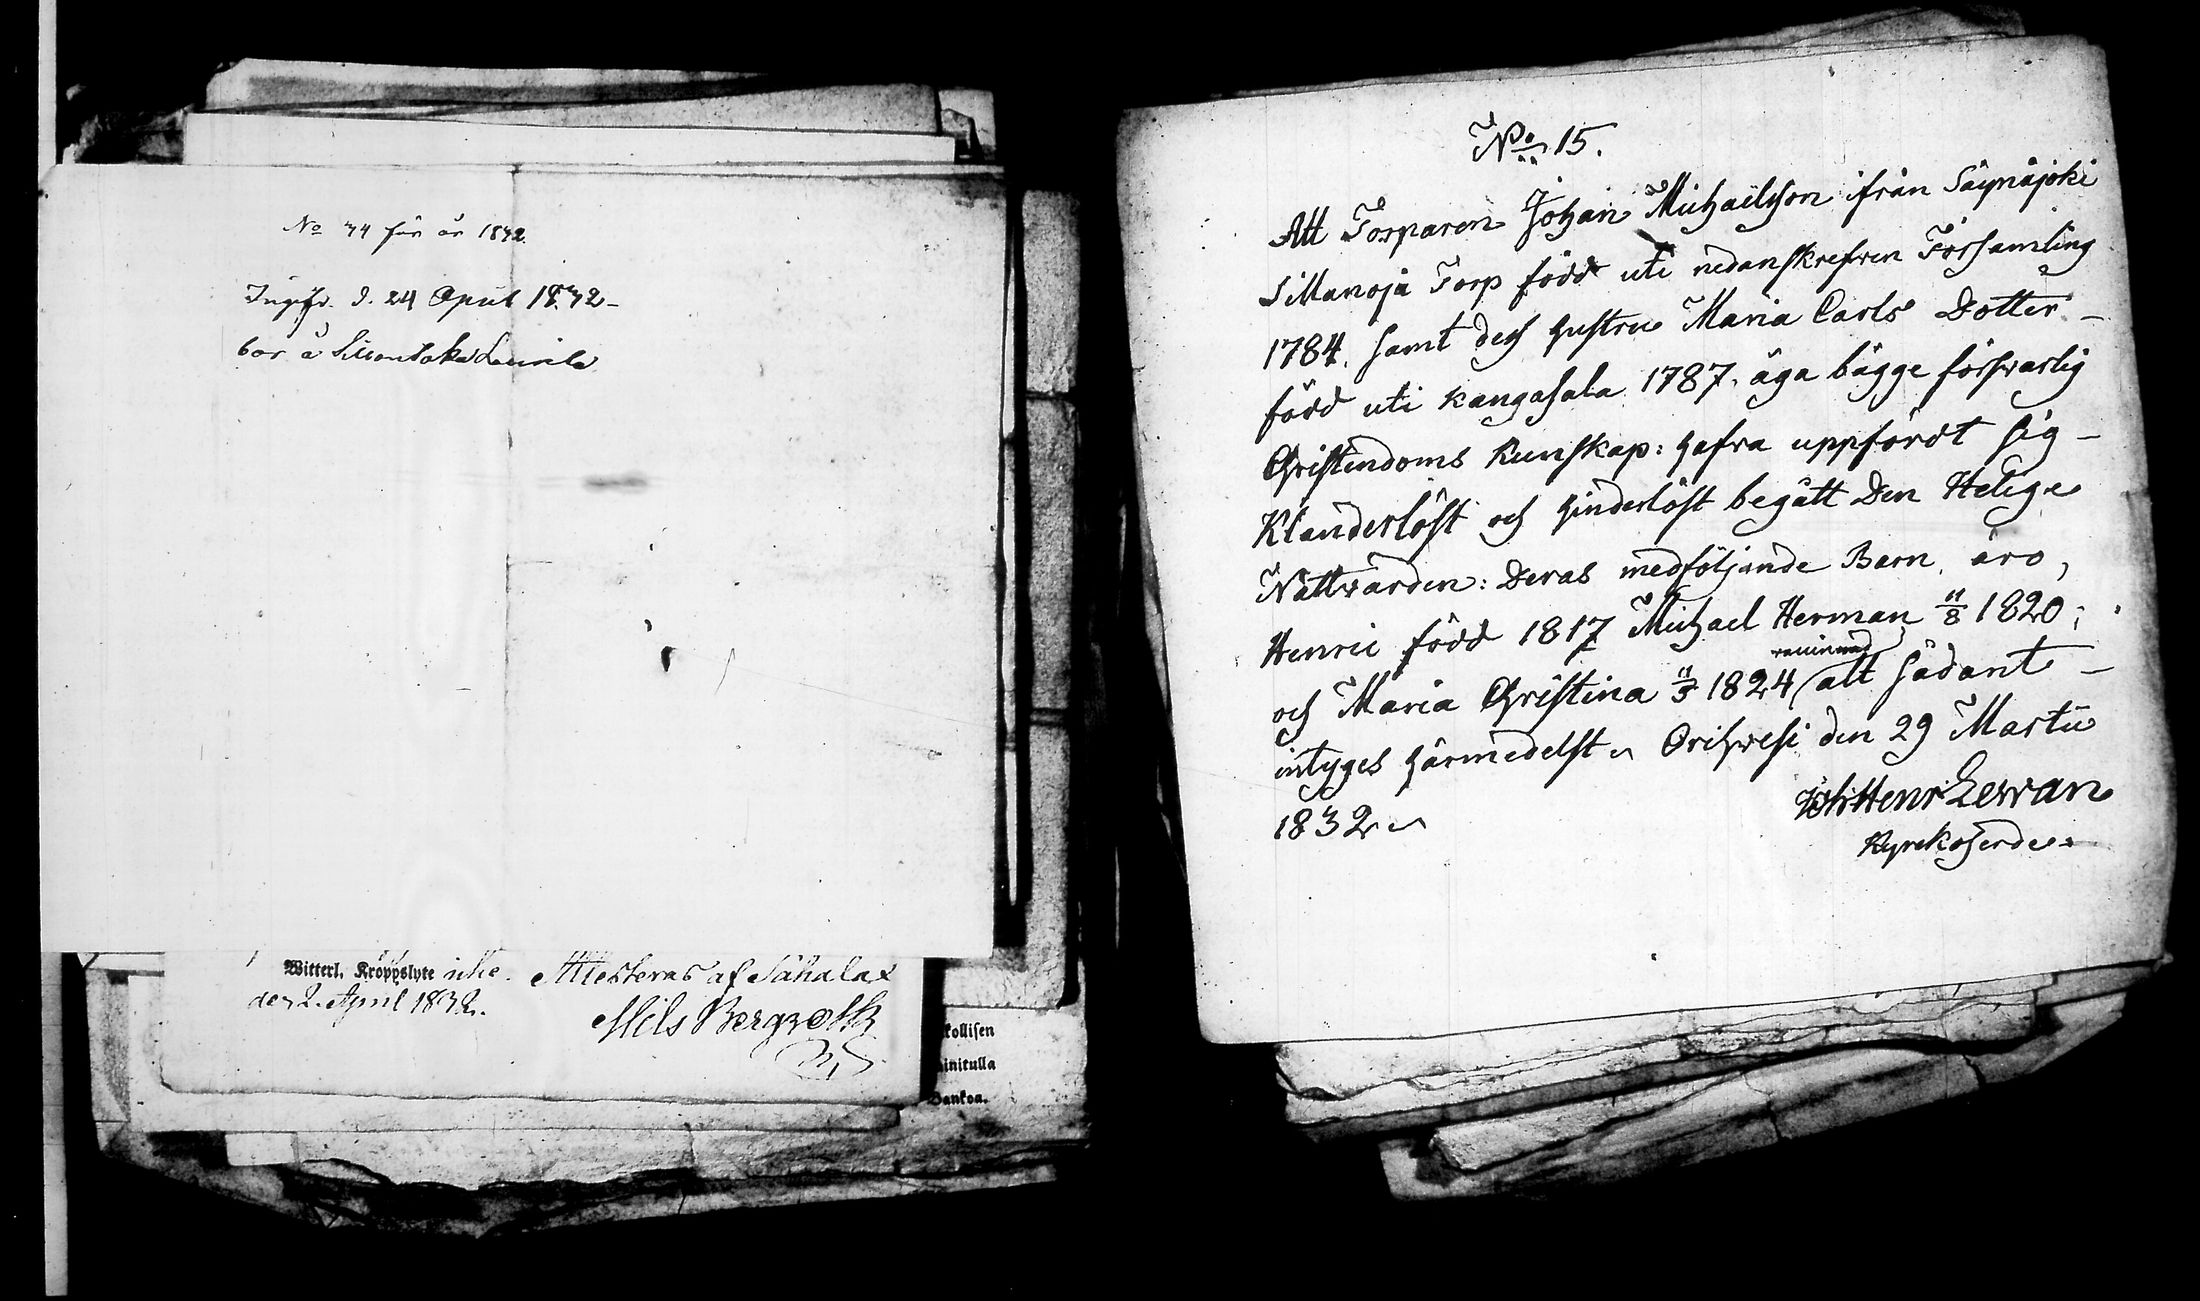 No 44 för år 1832.
d. 24 April 1832 –
bor å
Witterl. Kroppslyte icke. Attesteras af Sahalax
den 2. April 1832.
Nils Bergroth
kollisen
Bankoa.
No 15.
Att Torparen Johan Michaelsson ifrån Säynäjoki
Sillanoja Torp född uti nedanskrefven Församling
1784. samt dess hustru Maria Carls Dotter –
född uti Kangasala 1787. äga bägge försvarlig
Christendoms Kunskap: hafva uppfördt sig –
Klanderlöst och hinderlöst begått Den Helige
Nattvarden: Deras medföljande Barn, äro,
Henric född 1817 Michael Herman 11/8 1820;
vaccinerad
och Maria Christina 11/3 1824 allt sådant –
intyges härmedelst Orihvesi den 29 Martii
1832
Henr Levvan
Kyrkoherde